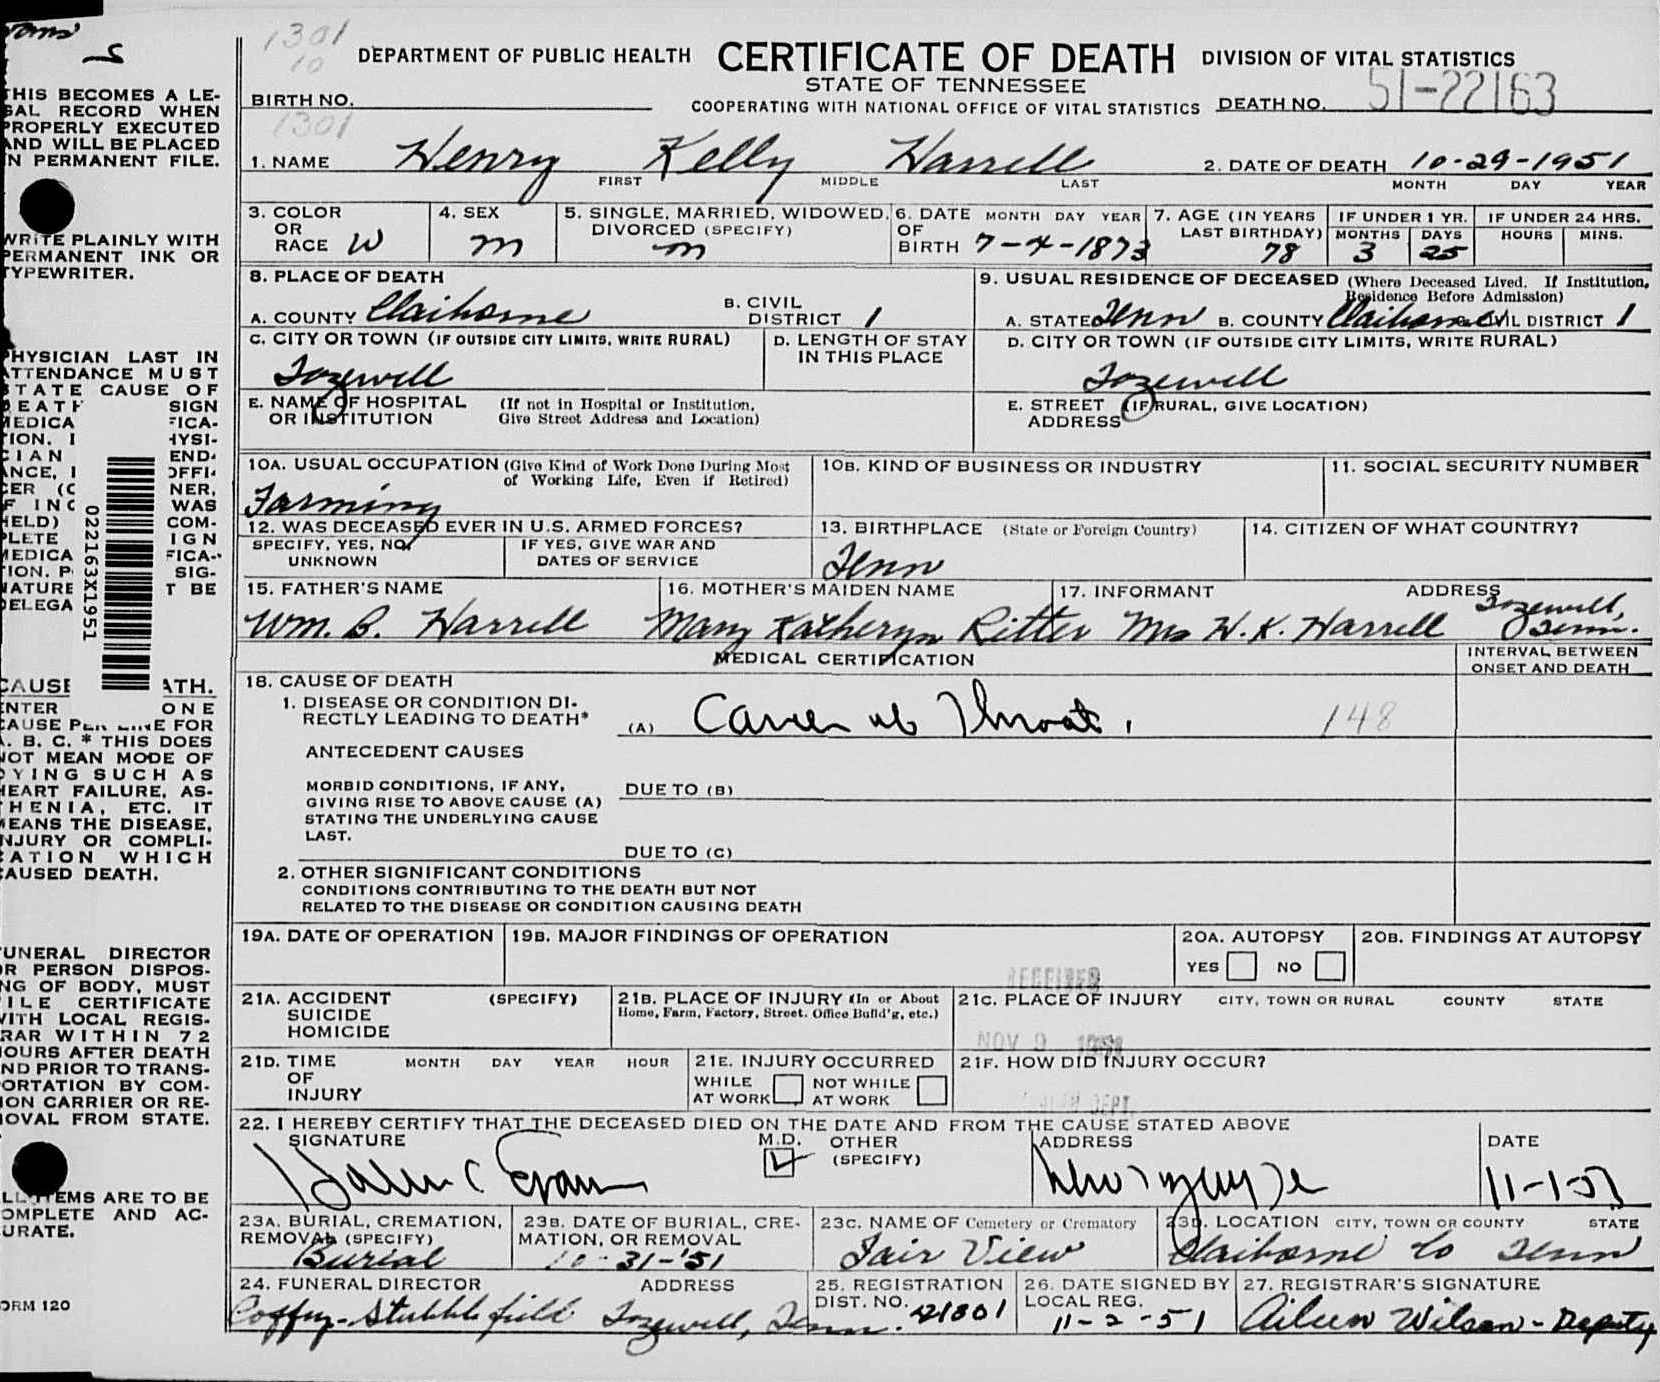 1301
10
DEPARTMENT OF PUBLIC HEALTH CERTIFICATE OF DEATH DIVISION OF VITAL STATISTICS
STATE OF TENNESSEE
BIRTH NO. COOPERATING WITH NATIONAL OFFICE OF VITAL STATISTICS DEATH NO. 51-22163
1301
1. NAME Henry Kelly Harrell 2. DATE OF DEATH 10-29-1951
FIRST MIDDLE LAST MONTH DAY YEAR
3. COLOR OR RACE W 4. SEX M 5. SINGLE, MARRIED, WIDOWED, DIVORCED (SPECIFY) M 6. DATE OF BIRTH MONTH DAY YEAR 7-4-1873 7. AGE (IN YEARS LAST BIRTHDAY) 78 IF UNDER 1 YR. MONTHS 3 DAYS 25 IF UNDER 24 HRS. HOURS MINS.
8. PLACE OF DEATH 9. USUAL RESIDENCE OF DECEASED (Where Deceased Lived. If Institution, Residence Before Admission)
A. COUNTY Claiborne B. CIVIL DISTRICT 1 A. STATE Tenn B. COUNTY Claiborne CIVIL DISTRICT 1
C. CITY OR TOWN (IF OUTSIDE CITY LIMITS, WRITE RURAL) Tazewell D. LENGTH OF STAY IN THIS PLACE D. CITY OR TOWN (IF OUTSIDE CITY LIMITS, WRITE RURAL) Tazewell
E. NAME OF HOSPITAL OR INSTITUTION (If not in Hospital or Institution, Give Street Address and Location) E. STREET ADDRESS (IF RURAL, GIVE LOCATION)
10A. USUAL OCCUPATION (Give Kind of Work Done During Most of Working Life, Even if Retired) Farming 10B. KIND OF BUSINESS OR INDUSTRY 11. SOCIAL SECURITY NUMBER
12. WAS DECEASED EVER IN U.S. ARMED FORCES? 13. BIRTHPLACE (State or Foreign Country) Tenn 14. CITIZEN OF WHAT COUNTRY?
SPECIFY, YES, NO, UNKNOWN IF YES, GIVE WAR AND DATES OF SERVICE
15. FATHER'S NAME 16. MOTHER'S MAIDEN NAME 17. INFORMANT ADDRESS
Wm. B. Harrell Mary Katheryn Ritter Mrs H. K. Harrell Tazewell, Tenn.
MEDICAL CERTIFICATION INTERVAL BETWEEN ONSET AND DEATH
18. CAUSE OF DEATH
1. DISEASE OR CONDITION DIRECTLY LEADING TO DEATH* (A) Cancer of Throat. 148
ANTECEDENT CAUSES
MORBID CONDITIONS, IF ANY, GIVING RISE TO ABOVE CAUSE (A) STATING THE UNDERLYING CAUSE LAST.
DUE TO (B)
DUE TO (C)
2. OTHER SIGNIFICANT CONDITIONS
CONDITIONS CONTRIBUTING TO THE DEATH BUT NOT
RELATED TO THE DISEASE OR CONDITION CAUSING DEATH
19A. DATE OF OPERATION 19B. MAJOR FINDINGS OF OPERATION 20A. AUTOPSY YES NO 20B. FINDINGS AT AUTOPSY
RECEIVED
21A. ACCIDENT SUICIDE HOMICIDE (SPECIFY) 21B. PLACE OF INJURY (In or About Home, Farm, Factory, Street, Office Build'g, etc.) 21C. PLACE OF INJURY CITY, TOWN OR RURAL COUNTY STATE
NOV 9 1951
21D. TIME OF INJURY MONTH DAY YEAR HOUR 21E. INJURY OCCURRED WHILE AT WORK NOT WHILE AT WORK 21F. HOW DID INJURY OCCUR?
DEPT.
22. I HEREBY CERTIFY THAT THE DECEASED DIED ON THE DATE AND FROM THE CAUSE STATED ABOVE
SIGNATURE M.D. OTHER (SPECIFY) ADDRESS DATE
Evans 11-1-51
23A. BURIAL, CREMATION, REMOVAL (SPECIFY) Burial 23B. DATE OF BURIAL, CREMATION, OR REMOVAL 10-31-'51 23C. NAME OF Cemetery or Crematory Fair View 23D. LOCATION CITY, TOWN OR COUNTY STATE Claiborne Co Tenn
24. FUNERAL DIRECTOR ADDRESS 25. REGISTRATION DIST. NO. 21301 26. DATE SIGNED BY LOCAL REG. 11-2-51 27. REGISTRAR'S SIGNATURE
Coffey-Stubblefield Tazewell, Tenn. Aileen Wilson - Deputy
THIS BECOMES A LE-
GAL RECORD WHEN
PROPERLY EXECUTED
AND WILL BE PLACED
IN PERMANENT FILE.
WRITE PLAINLY WITH
PERMANENT INK OR
TYPEWRITER.
PHYSICIAN LAST IN
ATTENDANCE MUST
STATE CAUSE OF
022163X1951
CAUSE FOR
A. B. C. * THIS DOES
NOT MEAN MODE OF
DYING SUCH AS
HEART FAILURE, AS-
THENIA, ETC. IT
MEANS THE DISEASE,
INJURY OR COMPLI-
CATION WHICH
CAUSED DEATH.
FUNERAL DIRECTOR
OR PERSON DISPOS-
ING OF BODY, MUST
FILE CERTIFICATE
WITH LOCAL REGIS-
TRAR WITHIN 72
HOURS AFTER DEATH
AND PRIOR TO TRANS-
PORTATION BY COM-
MON CARRIER OR RE-
MOVAL FROM STATE.
ALL ITEMS ARE TO BE
COMPLETE AND AC-
CURATE.
FORM 120